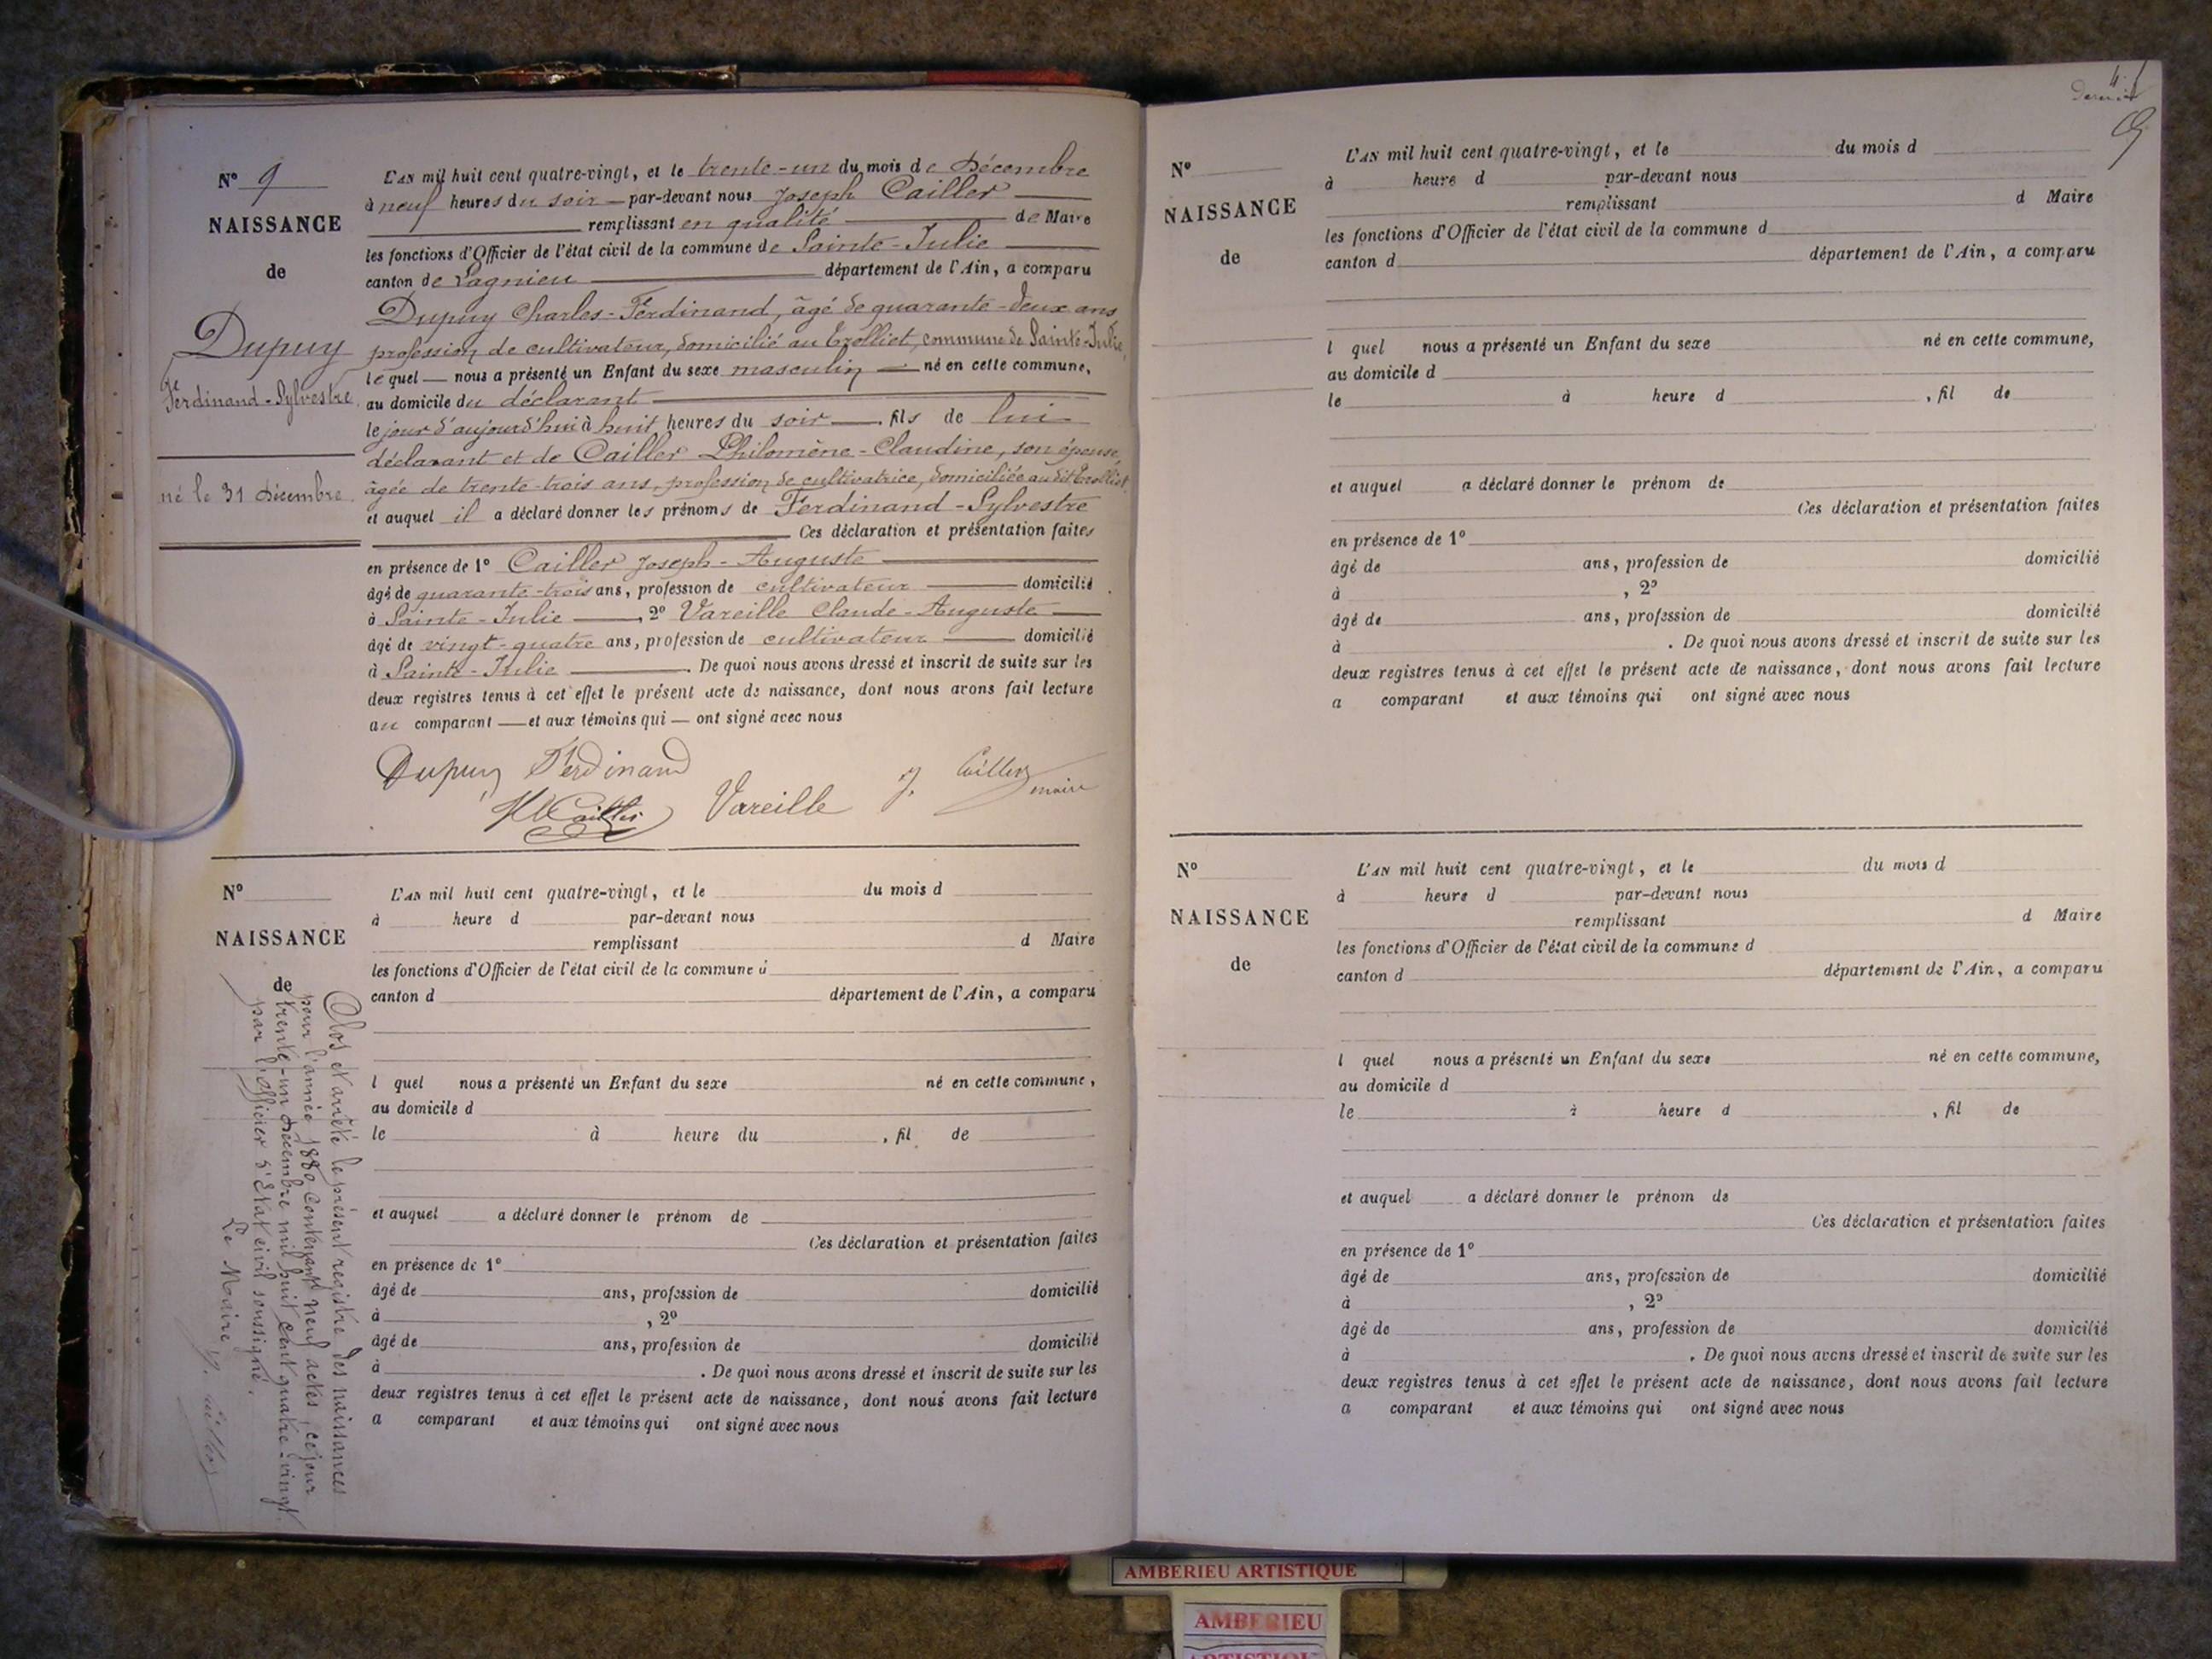 N° 9
NAISSANCE
de
Dupuy
Ferdinand-Sylvestre
né le 31 Décembre.
L'AN mil huit cent quatre-vingt, et le trente-un du mois de Décembre
à neuf heures du soir par-devant nous Joseph Cailler
remplissant en qualité de Maire
les fonctions d'Officier de l'état civil de la commune de Sainte-Julie
canton de Lagnieu département de l'Ain, a comparu
Dupuy Charles-Ferdinand, âgé de quarante-deux ans,
profession de cultivateur, domicilié au Trolliet, commune de Sainte-Julie,
lequel nous a présenté un Enfant du sexe masculin né en cette commune,
au domicile du déclarant
le jour d'aujourd'hui à huit heures du soir, fils de lui
déclarant et de Cailler Philomène-Claudine, son épouse,
âgée de trente-trois ans, profession de cultivatrice, domiciliée au dit Trolliet,
et auquel il a déclaré donner les prénoms de Ferdinand-Sylvestre
Ces déclaration et présentation faites
en présence de 1° Cailler Joseph-Auguste
âgé de quarante-trois ans, profession de cultivateur domicilié
à Sainte-Julie, 2° Vareille Claude-Auguste
âgé de vingt-quatre ans, profession de cultivateur domicilié
à Sainte-Julie. De quoi nous avons dressé et inscrit de suite sur les
deux registres tenus à cet effet le présent acte de naissance, dont nous avons fait lecture
au comparant et aux témoins qui ont signé avec nous
Dupuy Ferdinand
J. Cailler
maire
Cailler Vareille
N°
NAISSANCE
de
L'AN mil huit cent quatre-vingt, et le du mois d
à heure d par-devant nous
remplissant d Maire
les fonctions d'Officier de l'état civil de la commune d
canton d département de l'Ain, a comparu
l quel nous a présenté un Enfant du sexe né en cette commune,
au domicile d
le à heure du , fil de
et auquel a déclaré donner le prénom de
Ces déclaration et présentation faites
en présence de 1°
âgé de ans, profession de domicilié
à , 2°
âgé de ans, profession de domicilié
à . De quoi nous avons dressé et inscrit de suite sur les
deux registres tenus à cet effet le présent acte de naissance, dont nous avons fait lecture
a comparant et aux témoins qui ont signé avec nous
Clos et arrêté le présent registre des naissances
pour l'année 1880 contenant neuf actes, ce jour
trente-un Décembre mil huit cent quatre-vingt.
par l'officier d'Etat civil soussigné.
Le Maire J. Cailler
4
Dernier
N°
NAISSANCE
de
L'AN mil huit cent quatre-vingt, et le du mois d
à heure d par-devant nous
remplissant d Maire
les fonctions d'Officier de l'état civil de la commune d
canton d département de l'Ain, a comparu
l quel nous a présenté un Enfant du sexe né en cette commune,
au domicile d
le à heure d , fil de
et auquel a déclaré donner le prénom de
Ces déclaration et présentation faites
en présence de 1°
âgé de ans, profession de domicilié
à , 2°
âgé de ans, profession de domicilié
à . De quoi nous avons dressé et inscrit de suite sur les
deux registres tenus à cet effet le présent acte de naissance, dont nous avons fait lecture
a comparant et aux témoins qui ont signé avec nous
N°
NAISSANCE
de
L'AN mil huit cent quatre-vingt, et le du mois d
à heure d par-devant nous
remplissant d Maire
les fonctions d'Officier de l'état civil de la commune d
canton d département de l'Ain, a comparu
l quel nous a présenté un Enfant du sexe né en cette commune,
au domicile d
le à heure d , fil de
et auquel a déclaré donner le prénom de
Ces déclaration et présentation faites
en présence de 1°
âgé de ans, profession de domicilié
à , 2°
âgé de ans, profession de domicilié
à . De quoi nous avons dressé et inscrit de suite sur les
deux registres tenus à cet effet le présent acte de naissance, dont nous avons fait lecture
a comparant et aux témoins qui ont signé avec nous
AMBERIEU ARTISTIQUE
AMBERIEU
ARTISTIQUE